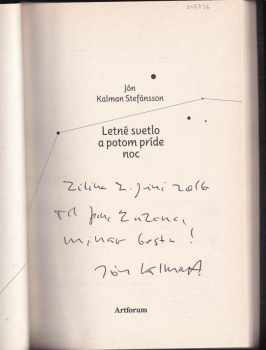 Jón
Kalman Stefánsson
Letné svetlo
a potom príde
noc
Žilina 2. júní 2016
Til
Zuzana,
mínar bestu!
Jón Kalman
Artforum